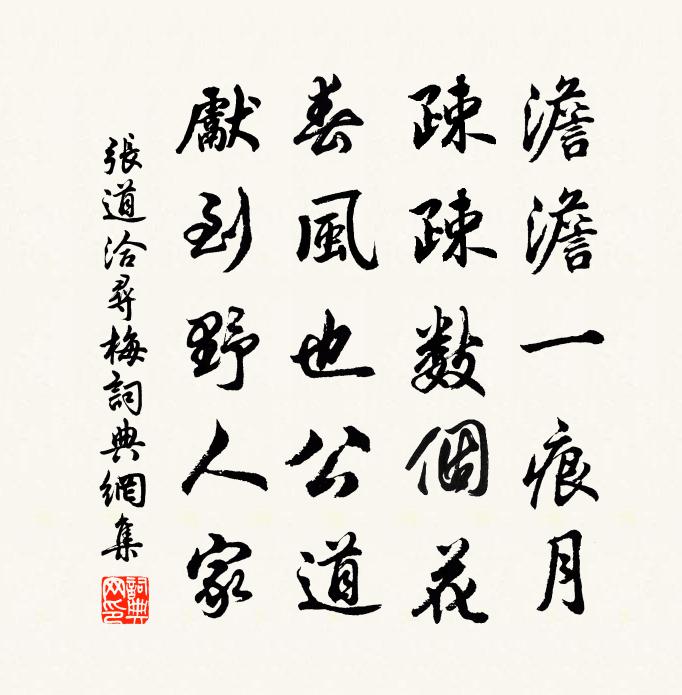 澹澹一痕月
疎疎數個花
春風也公道
獻到野人家
張道洽尋梅詞典網集
詞典网印